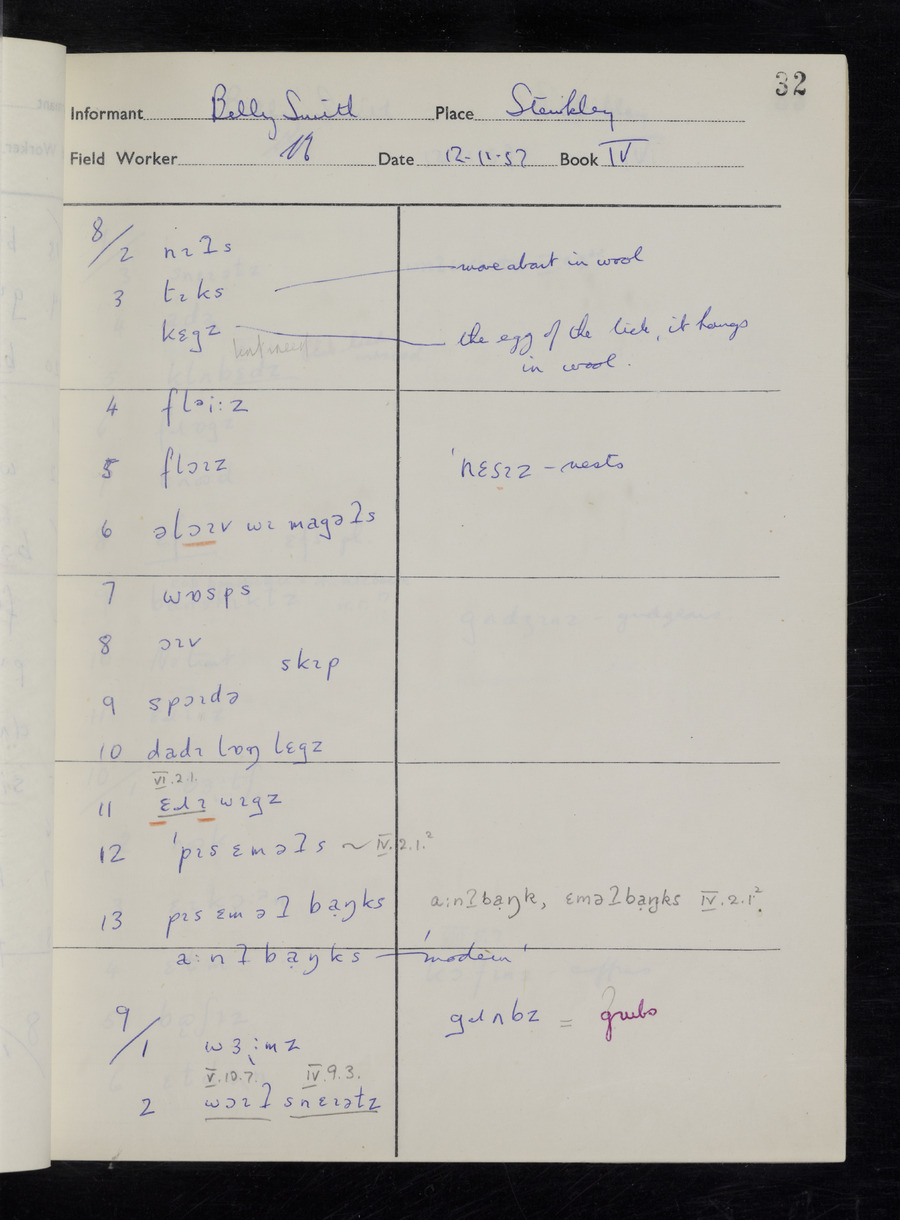 32
Informant Billy Smith Place Stewkley
Field Worker Date 12-11-57 Book IV
8/2 nɪƗs
3 tɪks move about in wool
kɛgz the egg of the tick, it hangs in wool.
4 fləi:z
5 flɔɪz 'nɛsɪz – nests
6 əlɔɪv wɪ magəƗs
7 wɒsps
8 ɔɪv
skɪp
9 spɔɪdə
10 dadɪ lɒŋ lɛgz
VI.2.1.
11 ɛɹɪ wɪgz
12 'pɪsɛməƗs ~ IV.2.1.²
13 pɪsɛməƗ baŋks a:nƗbaŋk, ɛməƗbaŋks IV.2.1².
a:nƗbaŋks 'modern'
gɹʌbz = grubs
9/1 wɜ:mz
V.10.7. IV.9.3.
2 wɔɪƗ snɛɪətz